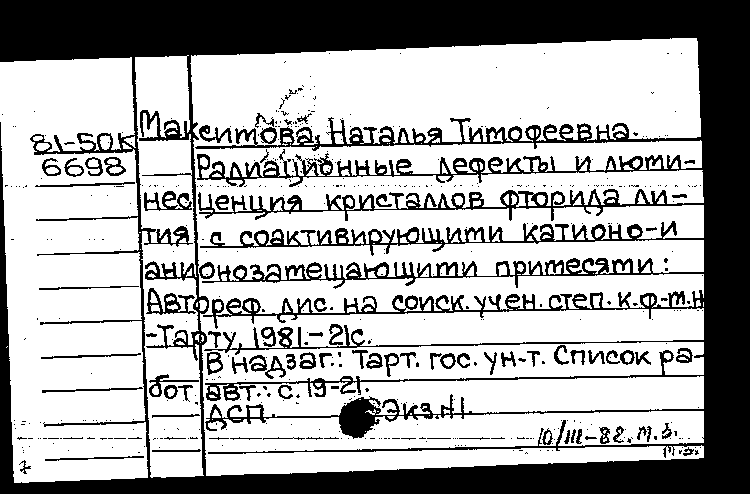 81-50к
6698
Максимова, Наталья Тимофеевна.
Радиационные дефекты и люми-
несценция кристаллов фторида ли-
тия с соактивирующими катионо-и
анионозамещающими примесями:
Автореф. дис. на соиск. учен. степ. к.ф.-м.н
-Тарту, 1981.-21с.
В надзаг.: Тарт. гос. ун-т. Список ра-
бот авт.: с. 19-21.
ДСП. Экз.№1.
10/III-82.